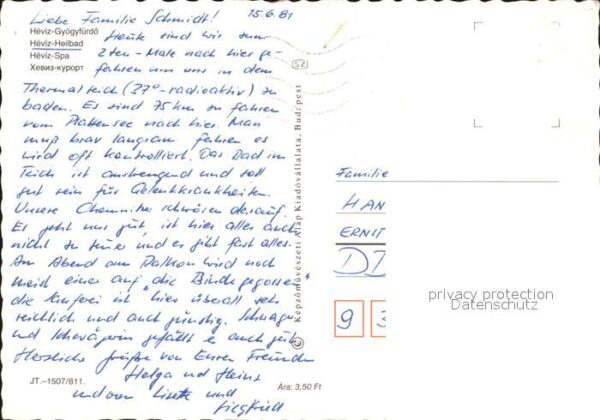 Liebe Familie Schmidt! 15.6.81
Hévíz-Gyógyfürdő
Hévíz-Heilbad
Hévíz-Spa
Хевиз-курорт
Heute sind wir zum
2ten-Male nach hier ge-
fahren um uns in dem
Thermalteich (37°-radioaktiv) zu
baden. Es sind 75 km zu fahren
vom Plattensee nach hier. Man
muß brav langsam fahren es
wird oft kontrolliert. Das Bad im
Teich ist anstrengend und soll
gut sein für Gelenkkrankheiten.
Unsere Chemnitzer schwören darauf.
Es geht uns gut, ist hier alles auch
nicht zu teuer und es gibt fast alles.
Am Abend am Balkon wird noch
meist einer auf „die Binde gegossen"
die Lauferei ist hier überall sehr
reichlich und auch günstig. Schwager
und Schwägerin gefällt es auch gut.
Herzliche Grüße von Euren Freunden
Helga und Heinz
und von Lisette und
Siegfried
JT.–1507/811.
Ára: 3,50 Ft
SZ
© Képzőművészeti Alap Kiadóvállalata, Budapest
Familie
HAN
ERNST
D7
9
privacy protection
Datenschutz